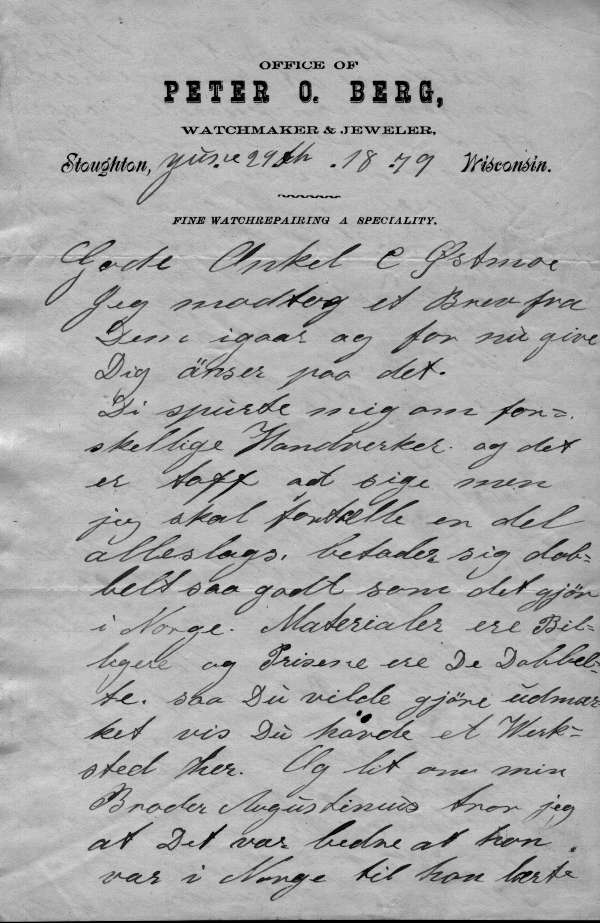 OFFICE OF
PETER O. BERG,
WATCHMAKER & JEWELER,
Stoughton, June 29th . 18 . 79 Wisconsin.
FINE WATCHREPAIRING A SPECIALITY.
Gode Onkel C Østmoe
Jeg modtog et Brev fra
Dem igaar og for nu give
Dig änser paa det.
Di spurte mig om for=
skellige Handverker og det
er toff at sige men
jeg skal fortælle en del
alleslags. betader sig dob=
belt saa godt som det gjör
i Norge. Materialer ere Bil=
ligere og Prisene ere De Dobbel=
te. saa Du vilde gjöre udmær
ket vis Du havde et Werk=
sted her. Og lit om min
Broder Augustinus tror jeg
at Det var bedre at han
var i Norge til han lærte